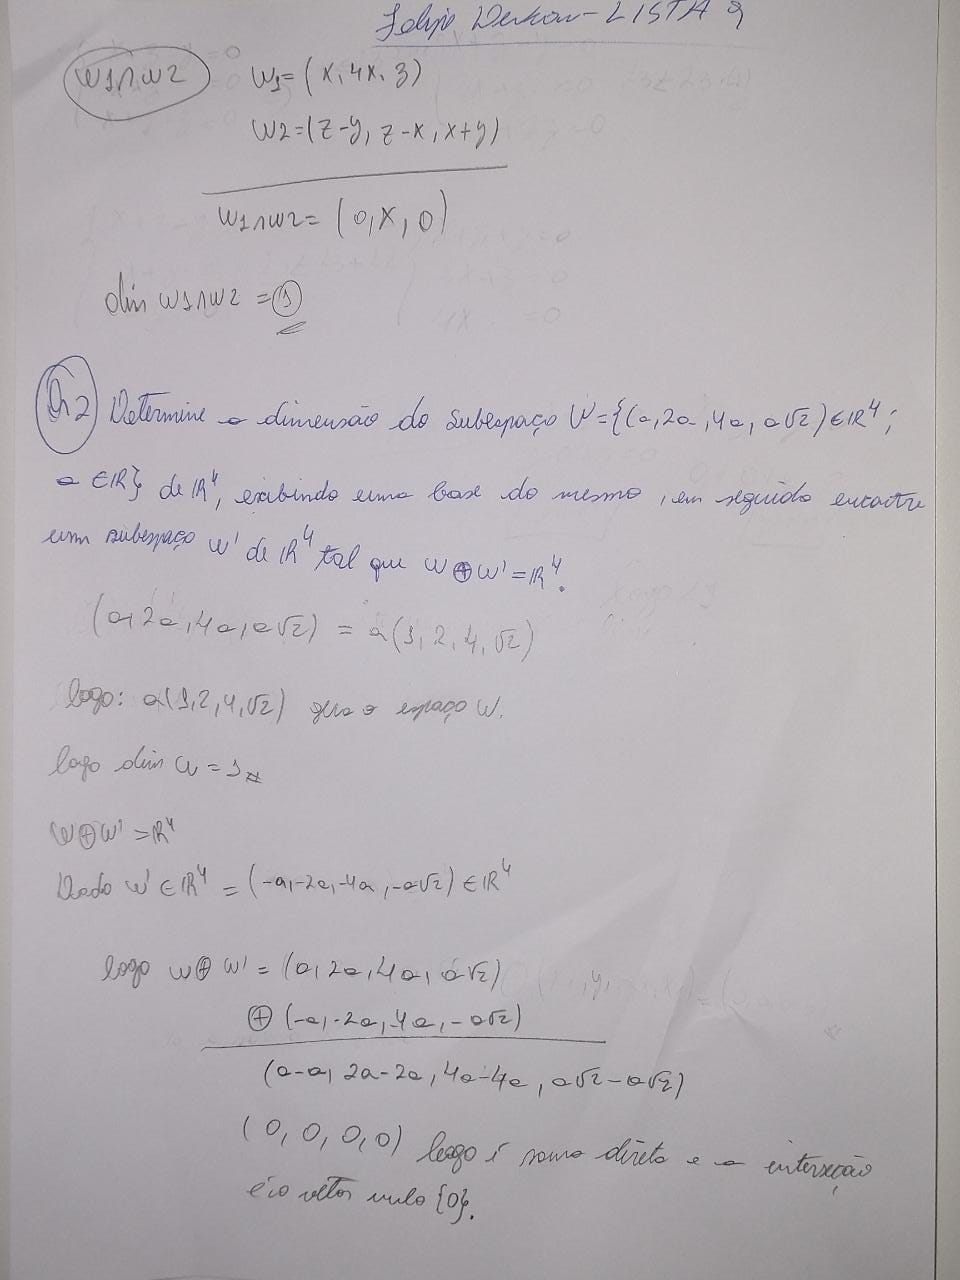 LISTA 9
W1∩W2 W1=(x, 4x, 3)
W2=(z-y, z-x, x+y)
W1∩W2=(0, x, 0)
dim W1∩W2 = 1
Q2) Determine a dimensão do subespaço W={(a, 2a, 4a, a√2)∈ℝ⁴;
a ∈ℝ} de ℝ⁴, exibindo uma base do mesmo, em seguida encontre
um subespaço W' de ℝ⁴ tal que W⊕W'=ℝ⁴.
(a, 2a, 4a, a√2) = a(1, 2, 4, √2)
logo: a(1, 2, 4, √2) gera o espaço W.
logo dim W = 1
W⊕W' = ℝ⁴
Dado W' ∈ℝ⁴ = (-a, -2a, -4a, -a√2) ∈ℝ⁴
logo W⊕W' = (a, 2a, 4a, a√2)
⊕ (-a, -2a, -4a, -a√2)
(a-a, 2a-2a, 4a-4a, a√2-a√2)
(0, 0, 0, 0) logo é soma direta e a interseção
é o vetor nulo {0}.